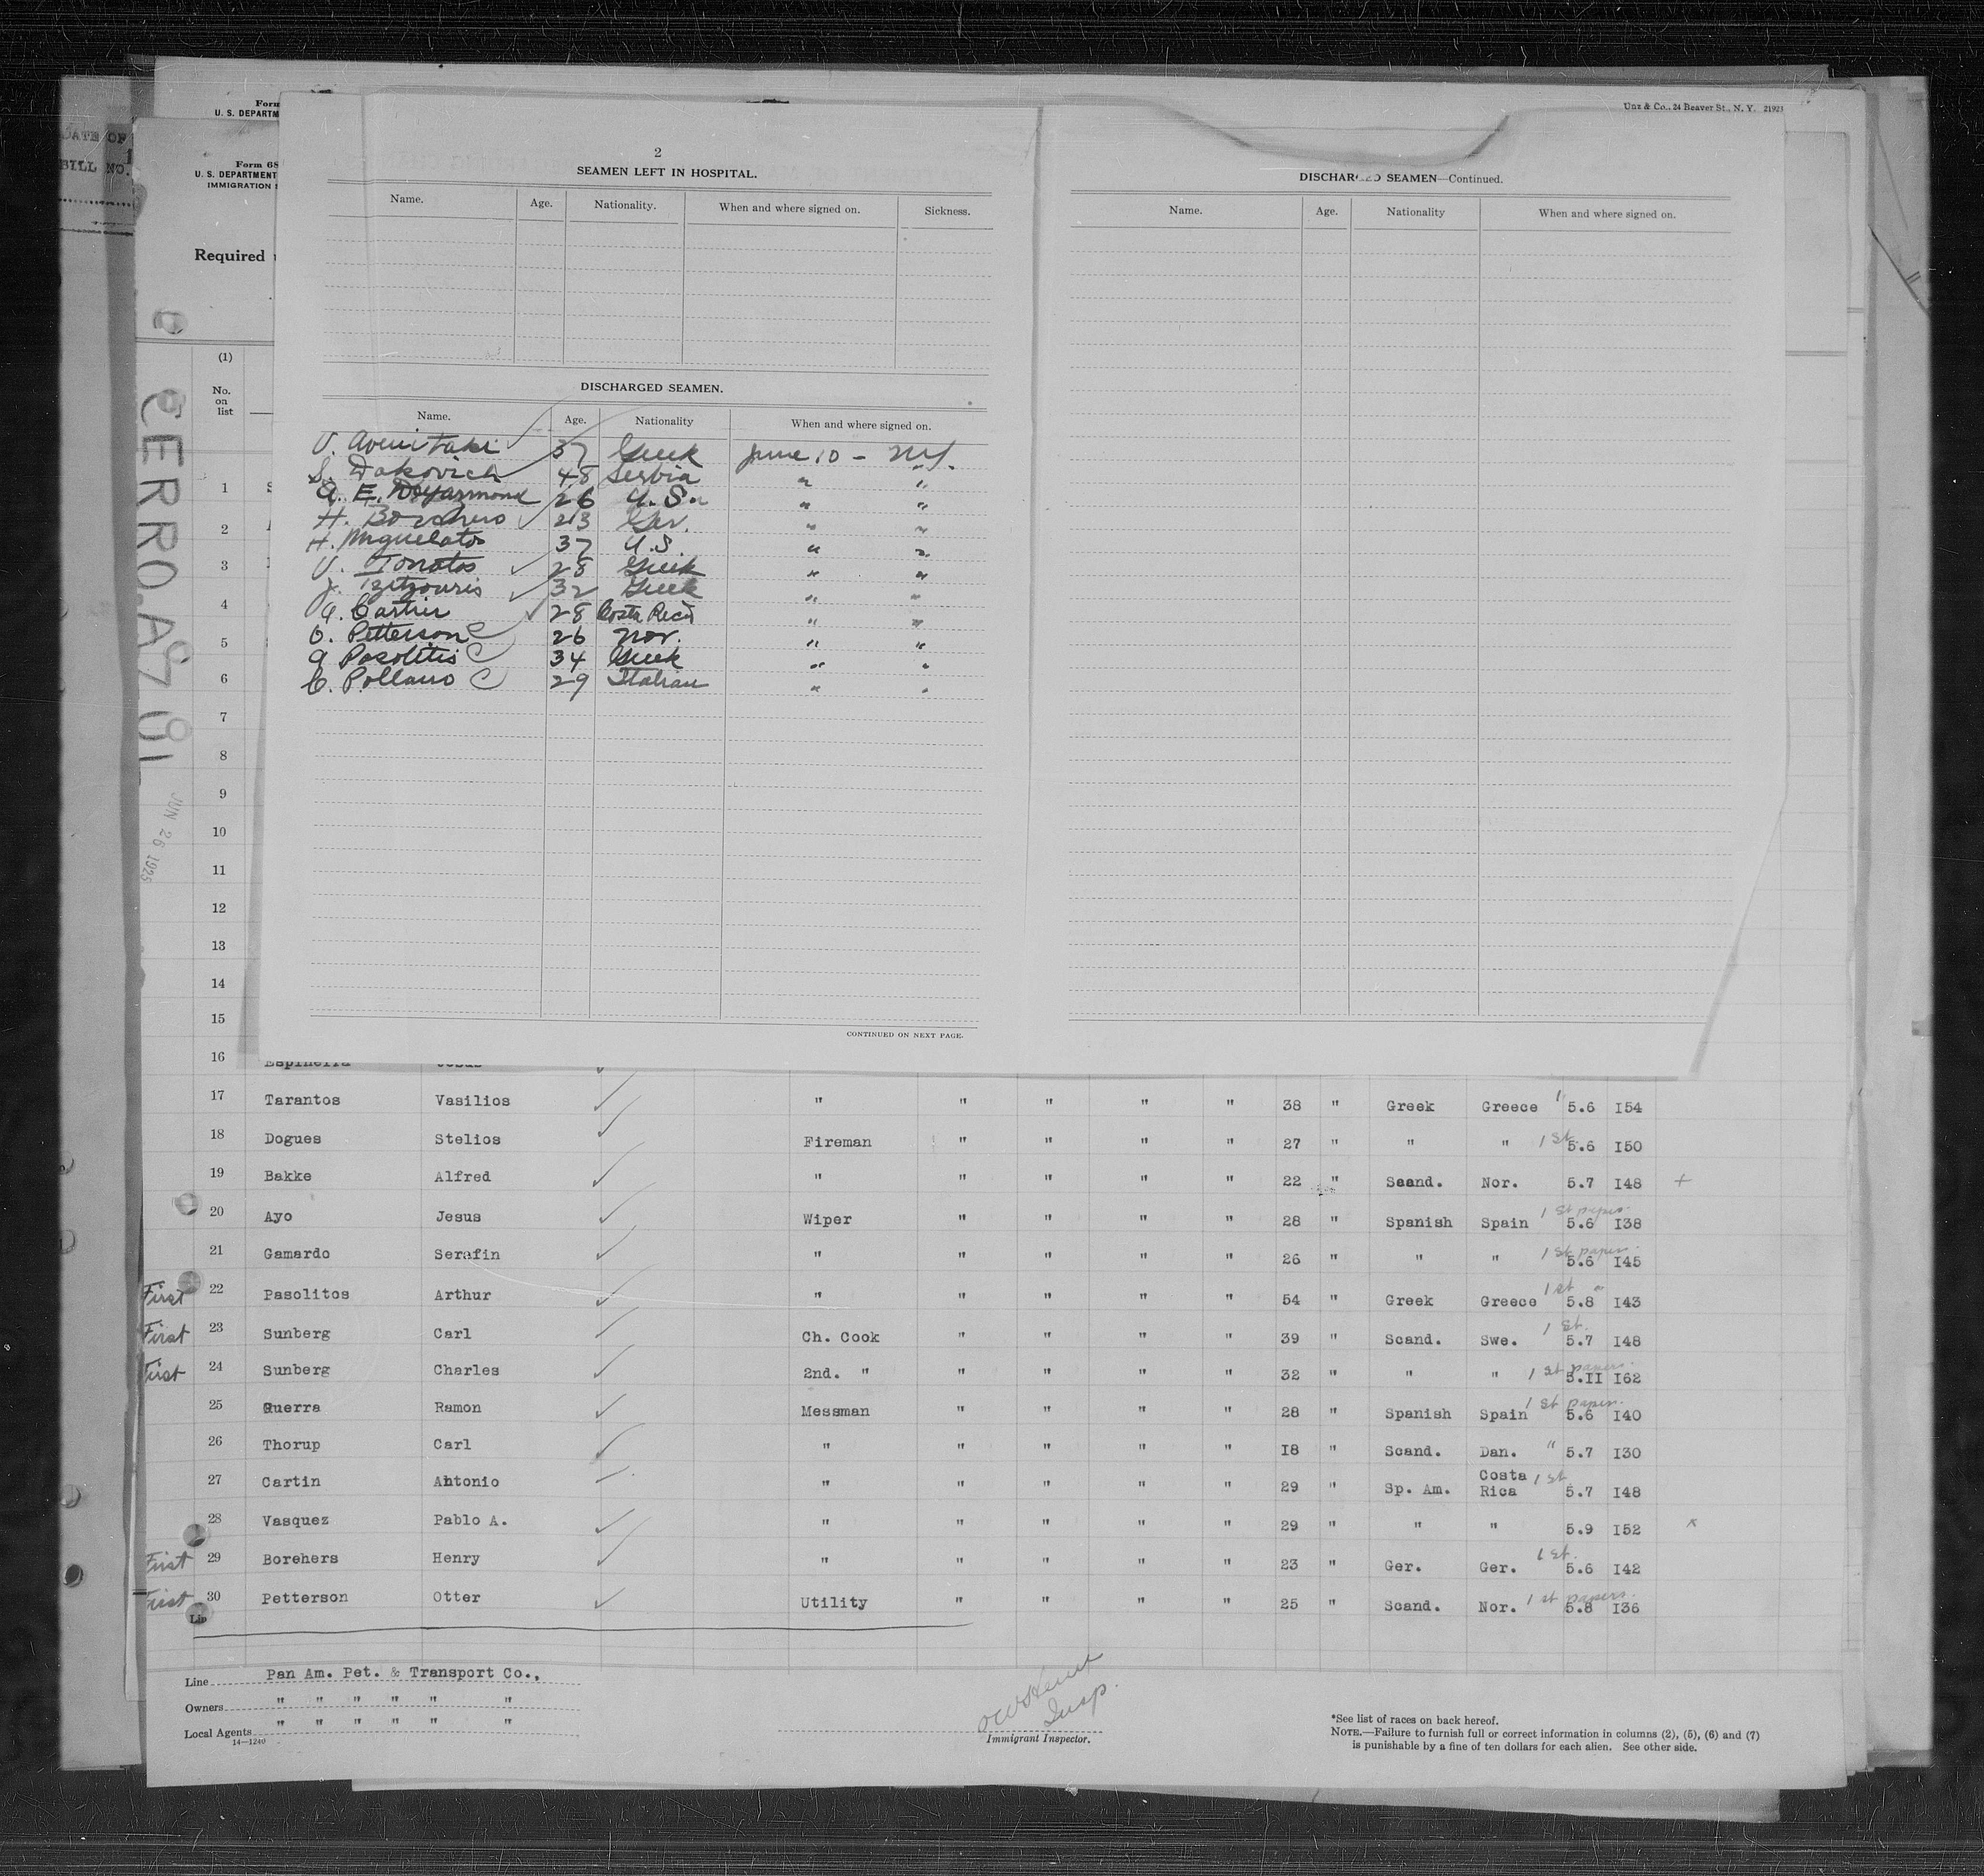 Form
U. S. DEPARTM
DATE OF
BILL NO.
Unz & Co., 24 Beaver St., N. Y. 21923
Form 68
U. S. DEPARTMENT
IMMIGRATION
Required
CERRO AZUL
JUN 26 1925
(1)
No. on list
2
SEAMEN LEFT IN HOSPITAL.
Name. Age. Nationality. When and where signed on. Sickness.
DISCHARGED SEAMEN.
Name. Age. Nationality When and where signed on.
V. 37 Greek June 10 - N.Y.
S. Dakovich 48 Serbia " "
E. DeYarmond 26 U.S. " "
H. Borchers 23 Ger. " "
H. Miguelatos 37 U.S. " "
V. Tonatos 28 Greek " "
J. 32 Greek " "
A. Cartin 28 Costa Rica " "
O. Petterson 26 Nor. " "
A Pasolitis 34 Greek " "
C. Pollano 29 Italian " "
CONTINUED ON NEXT PAGE.
DISCHARGED SEAMEN—Continued.
Name. Age. Nationality When and where signed on.
1
2
3
4
5
6
7
8
9
10
11
12
13
14
15
16 Espineira Jesus
17 Tarantos Vasilios " " " " " 38 " Greek Greece 5.6 I54
18 Dogues Stelios Fireman " " " " 27 " " " 1 St 5.6 I50
19 Bakke Alfred " " " " " 22 " Scand. Nor. 5.7 I48 +
20 Ayo Jesus Wiper " " " " 28 " Spanish Spain 1 St papers. 5.6 I38
21 Gamardo Serafin " " " " " 26 " " " 1 St paper. 5.6 I45
First 22 Pasolitos Arthur " " " " " 54 " Greek Greece 1 st " 5.8 I43
First 23 Sunberg Carl Ch. Cook " " " " 39 " Scand. Swe. 1 St. 5.7 I48
First 24 Sunberg Charles 2nd. " " " " " 32 " " " 1 St papers. 5.II I62
25 Guerra Ramon Messman " " " " 28 " Spanish Spain 1 St papers. 5.6 I40
26 Thorup Carl " " " " " I8 " Scand. Dan. " 5.7 I30
27 Cartin Antonio " " " " " 29 " Sp. Am. Costa Rica 1 st 5.7 I48
28 Vasquez Pablo A. " " " " " 29 " " " 5.9 I52 x
First 29 Borehers Henry " " " " " 23 " Ger. Ger. 1 st. 5.6 I42
First 30 Petterson Otter Utility " " " " 25 " Scand. Nor. 1 st papers. 5.8 I36
Line Pan Am. Pet. & Transport Co.,
Owners " " " " " "
Local Agents " " " " " "
14—1240
Insp.
Immigrant Inspector.
*See list of races on back hereof.
NOTE.—Failure to furnish full or correct information in columns (2), (5), (6) and (7)
is punishable by a fine of ten dollars for each alien. See other side.